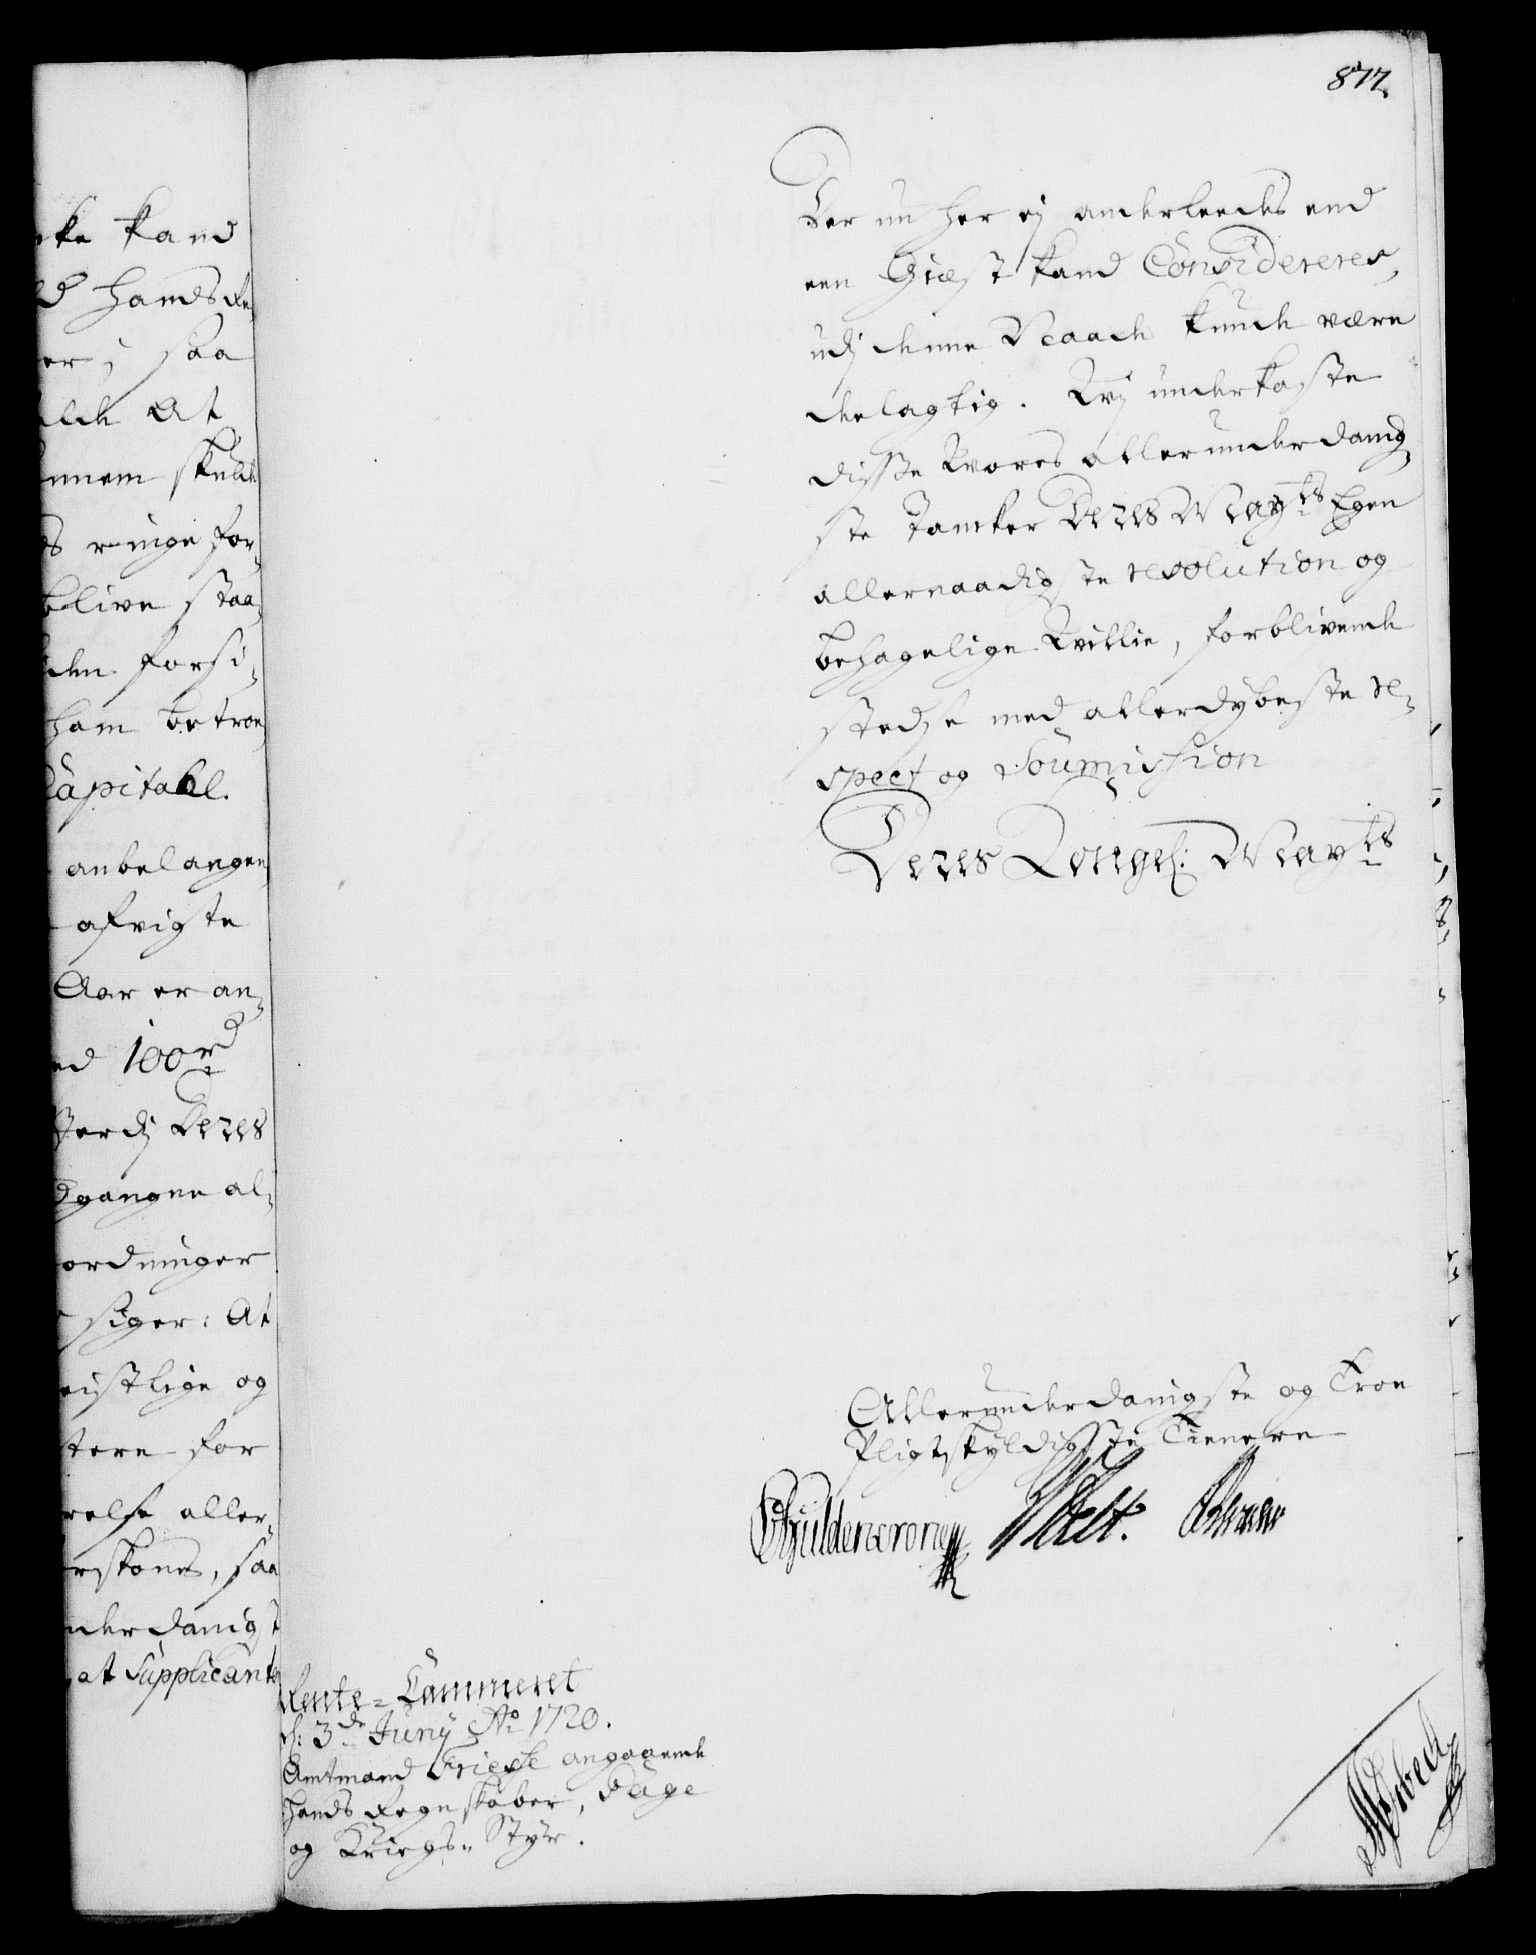 877.
Der nu her ej anderleedes end
een Giæst kand Considereres,
udj denne Naade kunde være
deelagtig. Wij underkaste
disse Wores allerunderdanig-
ste tancker Deres Mayts Egen
allernaadigste resolution og
behagelige Willie, forblivende
stedse med allerdybeste re-
spect og Soumission
Deres Kongel: Mayts
Allerunderdanigste og Troe
Pligtskyldigste Tienere
Güldencrone
Rente-Cammeret
d: 3de Juny Ao 1720.
Amtmand Friesse angaaende
hands Regnskaber, Sage
og Kriegs-Styr.
ke kand
hands Re
er, saa
At
nnem skulde
ringe for-
blive staa-
den forsi-
ham betroe
Capitall.
anbelangen
afvigte
Aar er an-
ed 100 rd
Deres
dgangne al-
ordninger
siger: At
eistlige og
tere for
relse aller-
rskones, saa
nderdanigst
at Supplicante